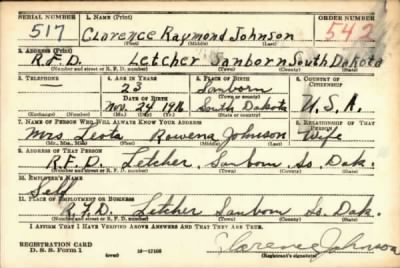 SERIAL NUMBER 1. NAME (Print) ORDER NUMBER
517 Clarence Raymond Johnson 542
(First) (Middle) (Last)
2. ADDRESS (Print)
R.F.D. Letcher Sanborn South Dakota
(Number and street or R. F. D. number) (Town) (County) (State)
3. TELEPHONE 4. AGE IN YEARS 5. PLACE OF BIRTH 6. COUNTRY OF CITIZENSHIP
— 23 Sanborn
DATE OF BIRTH (Town or county)
Nov. 24 1916 South Dakota U.S.A.
(Exchange) (Number) (Mo.) (Day) (Yr.) (State or country)
7. NAME OF PERSON WHO WILL ALWAYS KNOW YOUR ADDRESS 8. RELATIONSHIP OF THAT PERSON
Mrs Leota Rowena Johnson Wife
(Mr., Mrs., Miss) (First) (Middle) (Last)
9. ADDRESS OF THAT PERSON
R.F.D. Letcher, Sanborn So. Dak.
(Number and street or R. F. D. number) (Town) (County) (State)
10. EMPLOYER'S NAME
Self
11. PLACE OF EMPLOYMENT OR BUSINESS
R.F.D. Letcher Sanborn So. Dak.
(Number and street or R. F. D. number) (Town) (County) (State)
I AFFIRM THAT I HAVE VERIFIED ABOVE ANSWERS AND THAT THEY ARE TRUE.
REGISTRATION CARD
D. S. S. Form 1 (over) Clarence Johnson
(Registrant's signature)